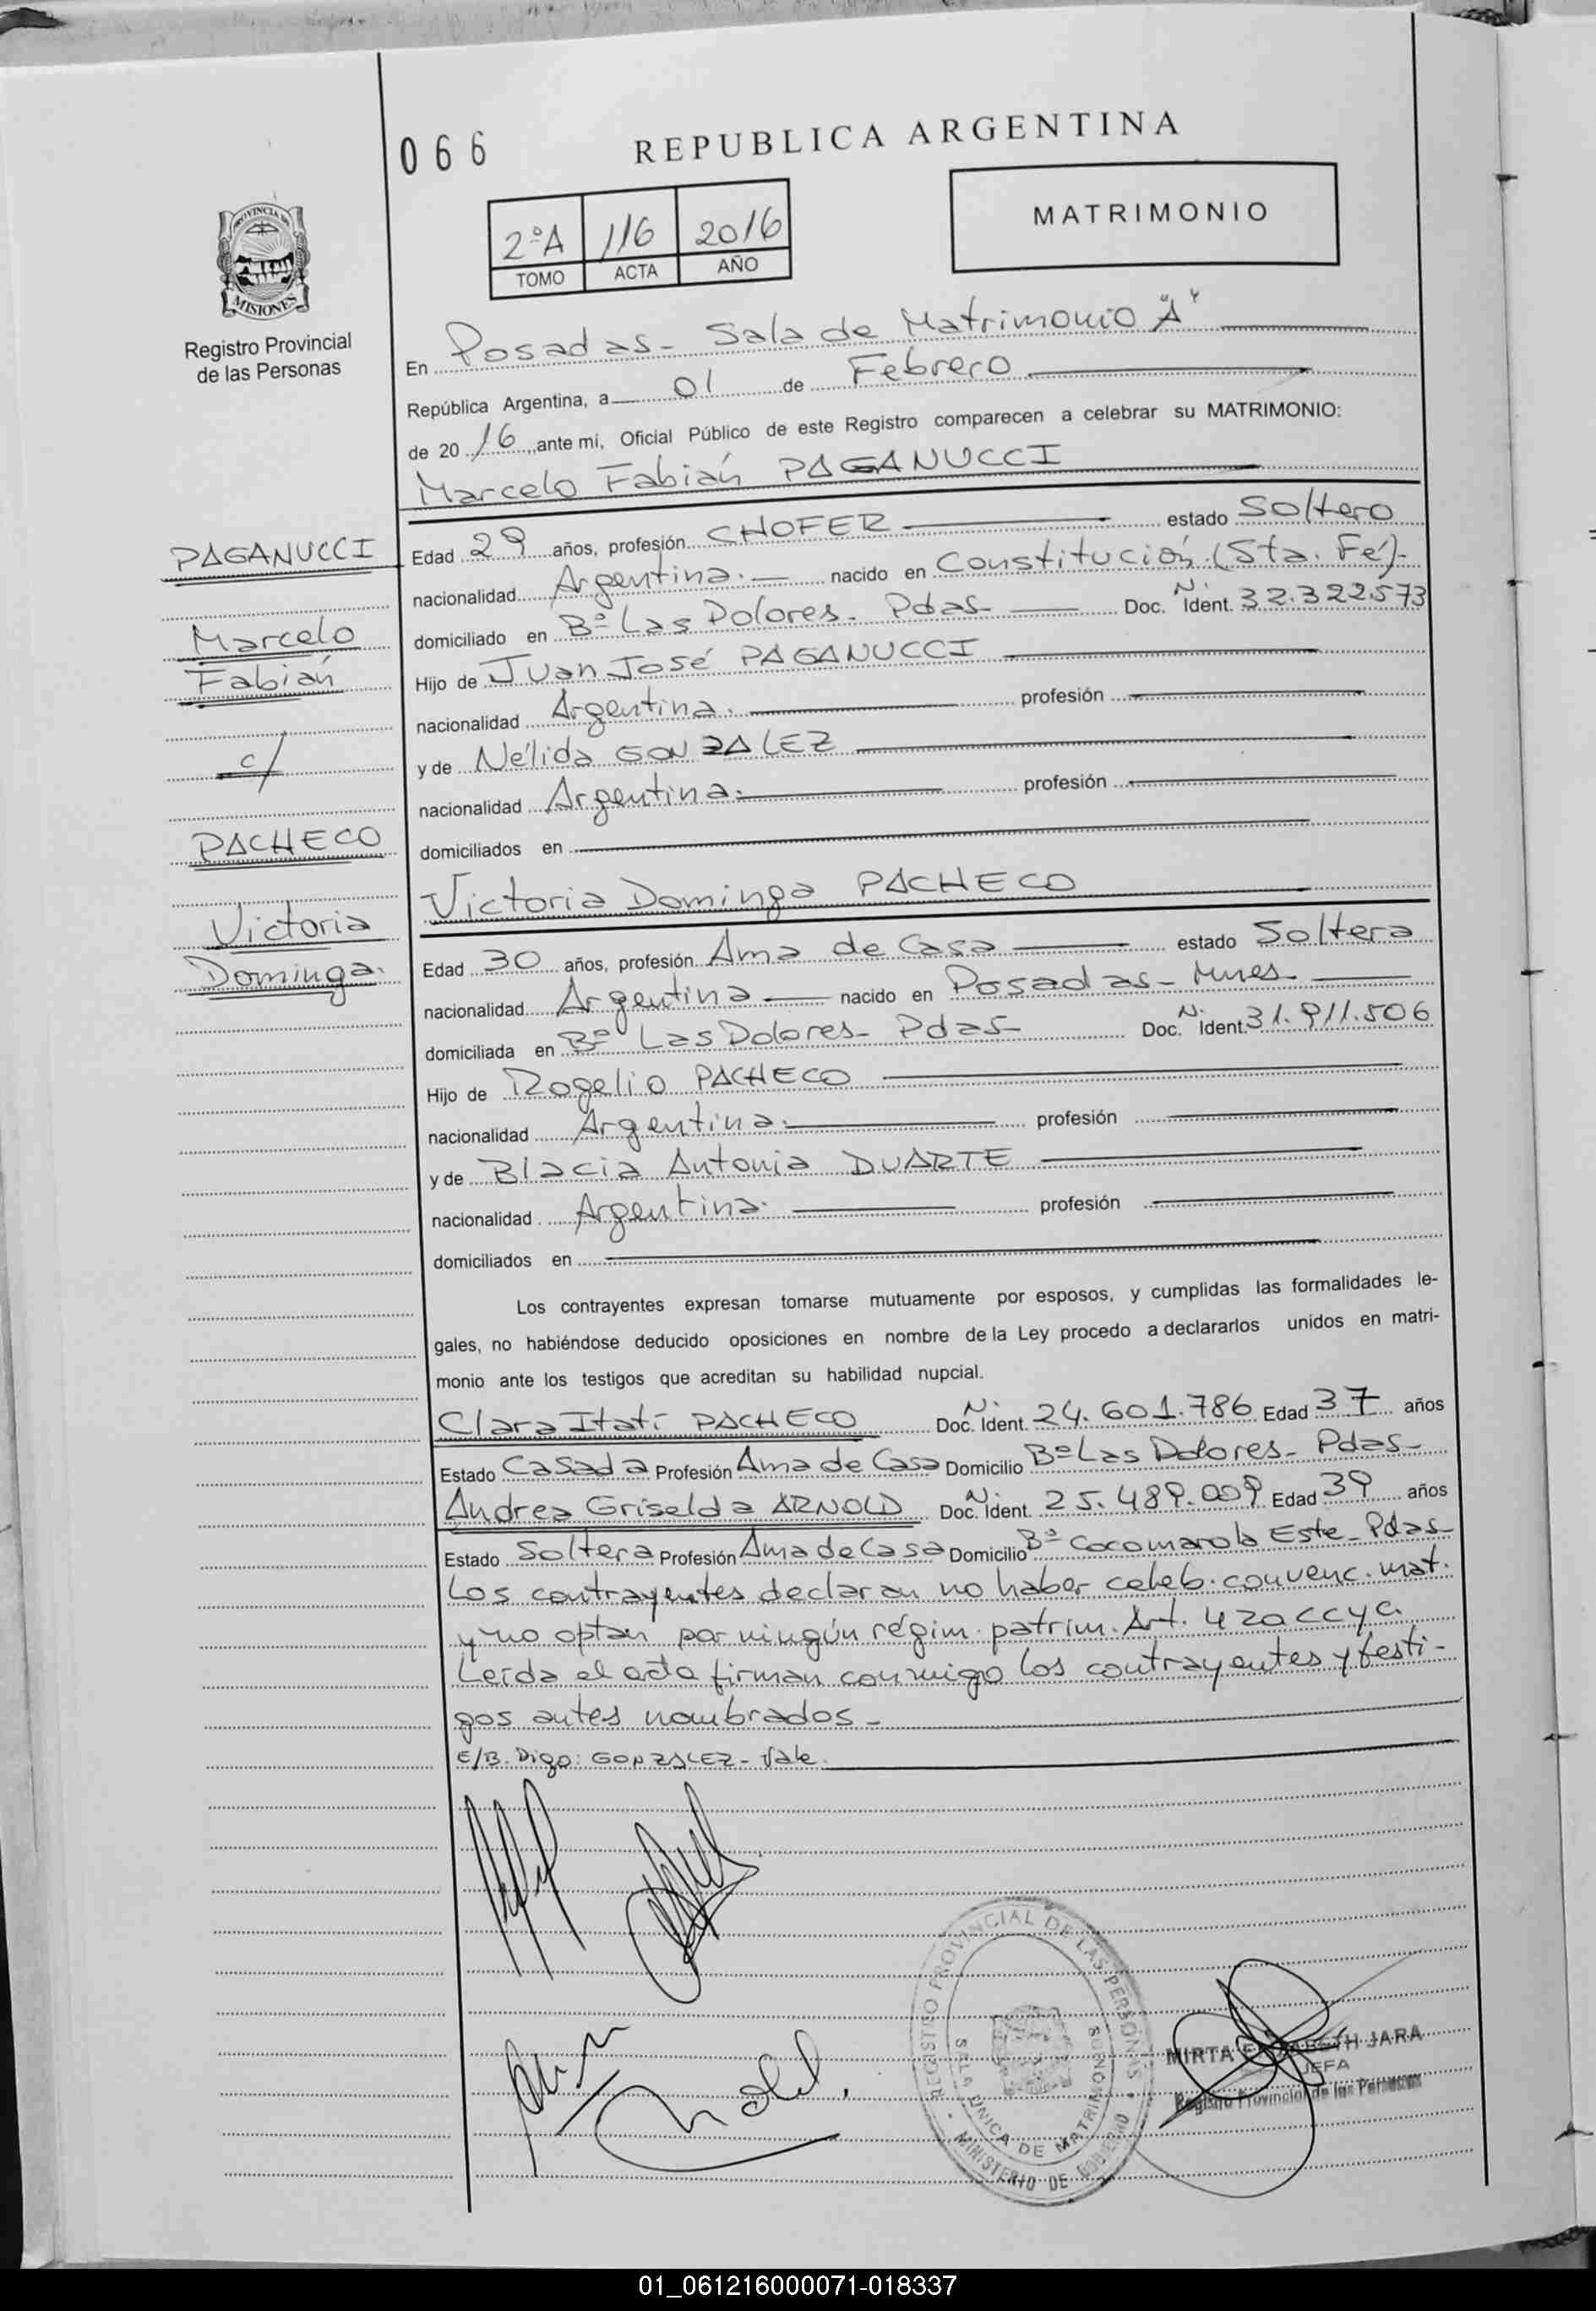 066
REPUBLICA ARGENTINA
2ºA 116 2016
TOMO ACTA AÑO
MATRIMONIO
PROVINCIA DE
MISIONES
Registro Provincial
de las Personas
En Posadas - Sala de Matrimonio "A"
República Argentina, a 01 de Febrero
de 20 16, ante mí, Oficial Público de este Registro comparecen a celebrar su MATRIMONIO:
Marcelo Fabián PAGANUCCI
PAGANUCCI
Marcelo
Fabián
c/
PACHECO
Victoria
Dominga.
Edad 29 años, profesión CHOFER estado Soltero
nacionalidad Argentina. nacido en Constitución (Sta. Fé)-
domiciliado en Bº Las Dolores - Pdas- Doc. N. Ident. 32.322.573
Hijo de Juan José PAGANUCCI
nacionalidad Argentina. profesión
y de Nélida GONZALEZ
nacionalidad Argentina. profesión
domiciliados en
Victoria Dominga PACHECO
Edad 30 años, profesión Ama de Casa estado Soltera
nacionalidad Argentina nacido en Posadas - Mnes-
domiciliada en Bº Las Dolores - Pdas- Doc. N. Ident. 31.911.506
Hijo de Rogelio PACHECO
nacionalidad Argentina. profesión
y de Blacia Antonia DUARTE
nacionalidad Argentina. profesión
domiciliados en
Los contrayentes expresan tomarse mutuamente por esposos, y cumplidas las formalidades le-
gales, no habiéndose deducido oposiciones en nombre de la Ley procedo a declararlos unidos en matri-
monio ante los testigos que acreditan su habilidad nupcial.
Clara Itatí PACHECO Doc. N. Ident. 24.601.786 Edad 37 años
Estado Casada Profesión Ama de Casa Domicilio Bº Las Dolores - Pdas-
Andrea Griselda ARNOLD Doc. N. Ident. 25.489.009 Edad 39 años
Estado Soltera Profesión Ama de Casa Domicilio Bº Cocomarola Este - Pdas-
Los contrayentes declaran no haber celeb. convenc. mat.
y no optan por ningún régim. patrim. Art. 420 CCyC.
Leída el acta firman conmigo los contrayentes y testi-
gos antes nombrados -
E/B. Digo: GONZALEZ - Vale.
REGISTRO PROVINCIAL DE LAS PERSONAS
SALA UNICA DE MATRIMONIOS
MINISTERIO DE GOBIERNO
MIRTA ELIZABETH JARA
JEFA
Registro Provincial de las Personas
01_061216000071-018337